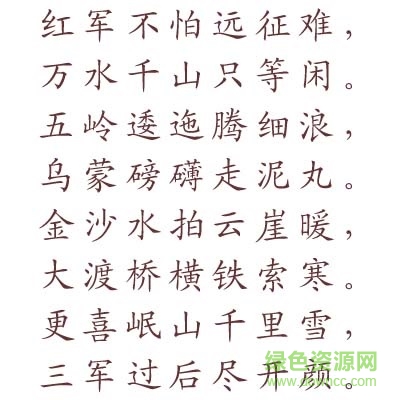 红军不怕远征难，
万水千山只等闲。
五岭逶迤腾细浪，
乌蒙磅礴走泥丸。
金沙水拍云崖暖，
大渡桥横铁索寒。
更喜岷山千里雪，
三军过后尽开颜。
绿色资源网
www.downcc.com